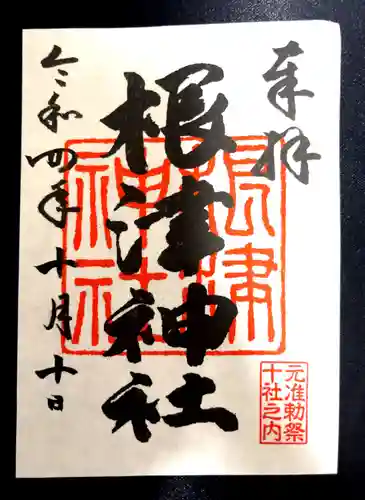 奉拝
根津神社
令和四年十月十日
根津神社
元准勅祭
十社之内